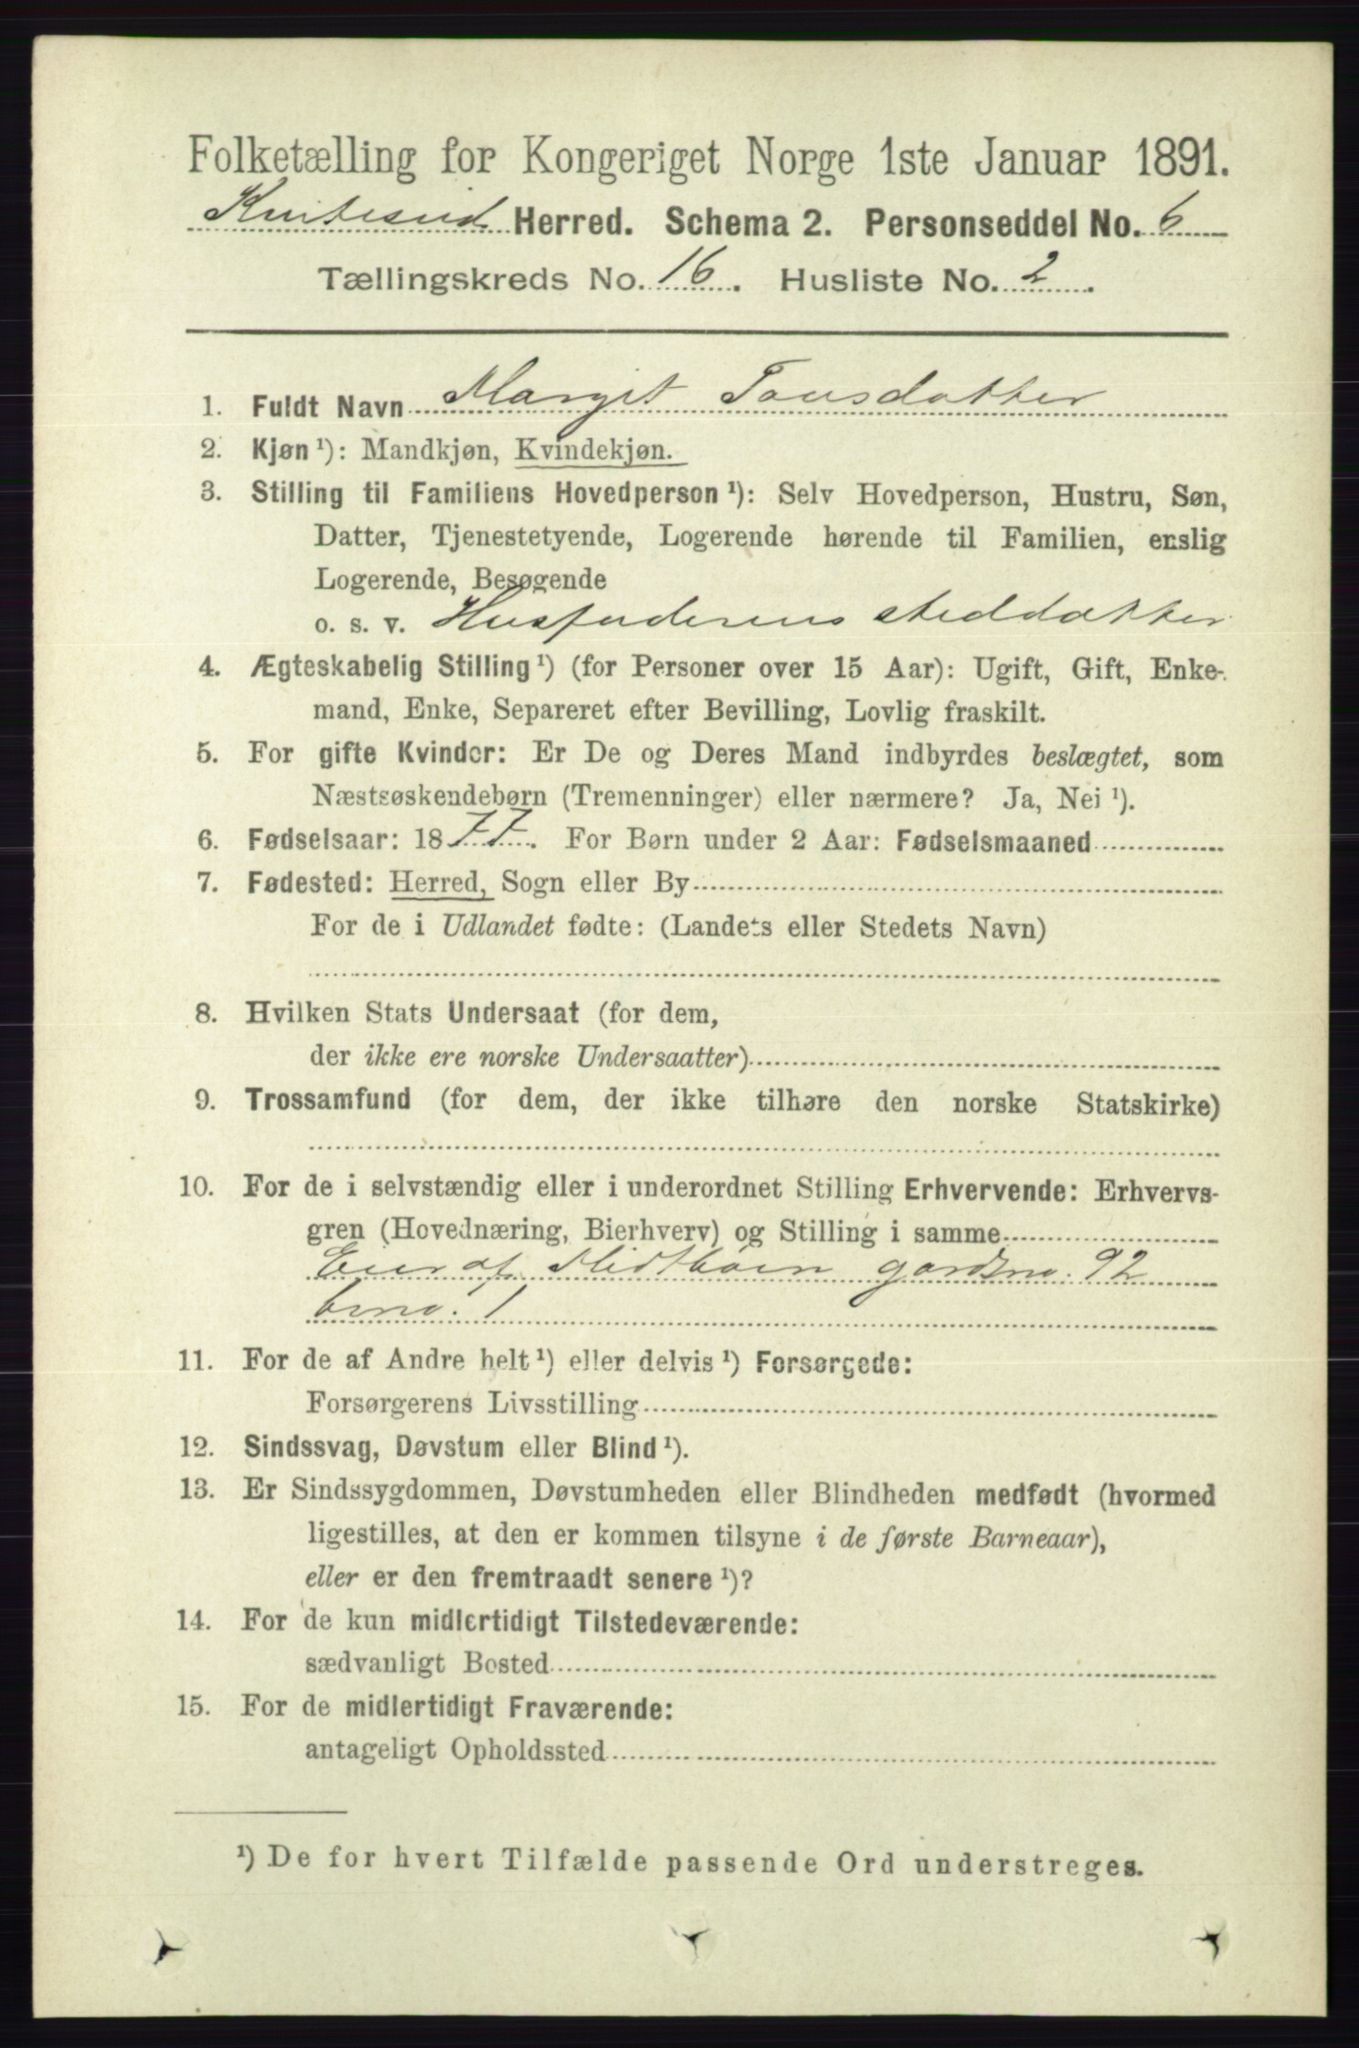 Folketælling for Kongeriget Norge 1ste Januar 1891.
Kviteseid Herred. Schema 2. Personseddel No. 6
Tællingskreds No. 16. Husliste No. 2.
1. Fuldt Navn Margit Tovsdatter
2. Kjøn ¹): Mandkjøn, Kvindekjøn.
3. Stilling til Familiens Hovedperson ¹): Selv Hovedperson, Hustru, Søn,
Datter, Tjenestetyende, Logerende hørende til Familien, enslig
Logerende, Besøgende
o. s. v. Husfaderens steddatter
4. Ægteskabelig Stilling ¹) (for Personer over 15 Aar): Ugift, Gift, Enke-
mand, Enke, Separeret efter Bevilling, Lovlig fraskilt.
5. For gifte Kvinder: Er De og Deres Mand indbyrdes beslægtet, som
Næstsøskendebørn (Tremenninger) eller nærmere? Ja, Nei ¹).
6. Fødselsaar: 1877. For Børn under 2 Aar: Fødselsmaaned
7. Fødested: Herred, Sogn eller By
For de i Udlandet fødte: (Landets eller Stedets Navn)
8. Hvilken Stats Undersaat (for dem,
der ikke ere norske Undersaatter)
9. Trossamfund (for dem, der ikke tilhøre den norske Statskirke)
10. For de i selvstændig eller i underordnet Stilling Erhvervende: Erhvervs-
gren (Hovednæring, Bierhverv) og Stilling i samme
Eier af Midtbøen gardsno. 92
bno. 1
11. For de af Andre helt ¹) eller delvis ¹) Forsørgede:
Forsørgerens Livsstilling
12. Sindssvag, Døvstum eller Blind ¹).
13. Er Sindssygdommen, Døvstumheden eller Blindheden medfødt (hvormed
ligestilles, at den er kommen tilsyne i de første Barneaar),
eller er den fremtraadt senere ¹)?
14. For de kun midlertidigt Tilstedeværende:
sædvanligt Bosted
15. For de midlertidigt Fraværende:
antageligt Opholdssted
¹) De for hvert Tilfælde passende Ord understreges.